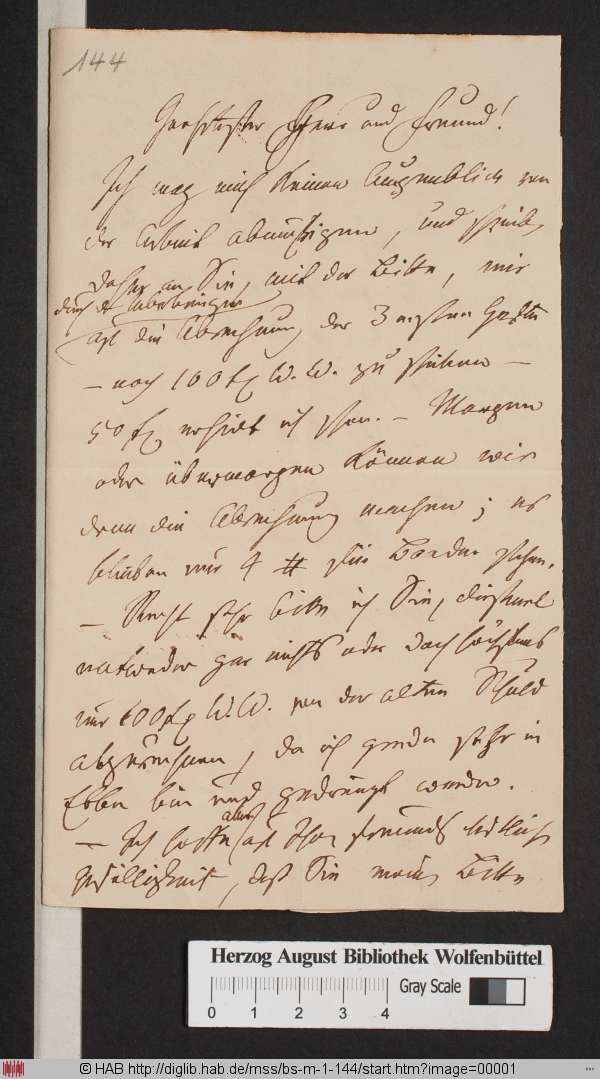 144
Geehrtester Herr und Freund!
Ich mag mich keinen Augenblick von
der Arbeit abmüßigen, und schreibe
daher an Sie, mit der Bitte, mir
durch d. Überbringer
auf die Abrechnung der 3 ersten Hefte
– noch 100 fl W. W. zu schicken –
50 fl erhielt ich schon. – Morgen
oder übermorgen können wir
dann die Abrechnung machen; es
bleiben nur 4 # für stehen.
– Recht sehr bitte ich Sie, diesmal
entweder gar nichts oder doch höchstens
nur 100 fl W. W. von der alten Schuld
abzurechnen, da ich gerade sehr in
Ebbe bin und gedrängt werde.
– Ich hoffe aber auf Ihre freundschaftliche
Gefälligkeit, daß Sie meine Bitte
Herzog August Bibliothek Wolfenbüttel
0 1 2 3 4
Gray Scale
© HAB http://diglib.hab.de/mss/bs-m-1-144/start.htm?image=00001